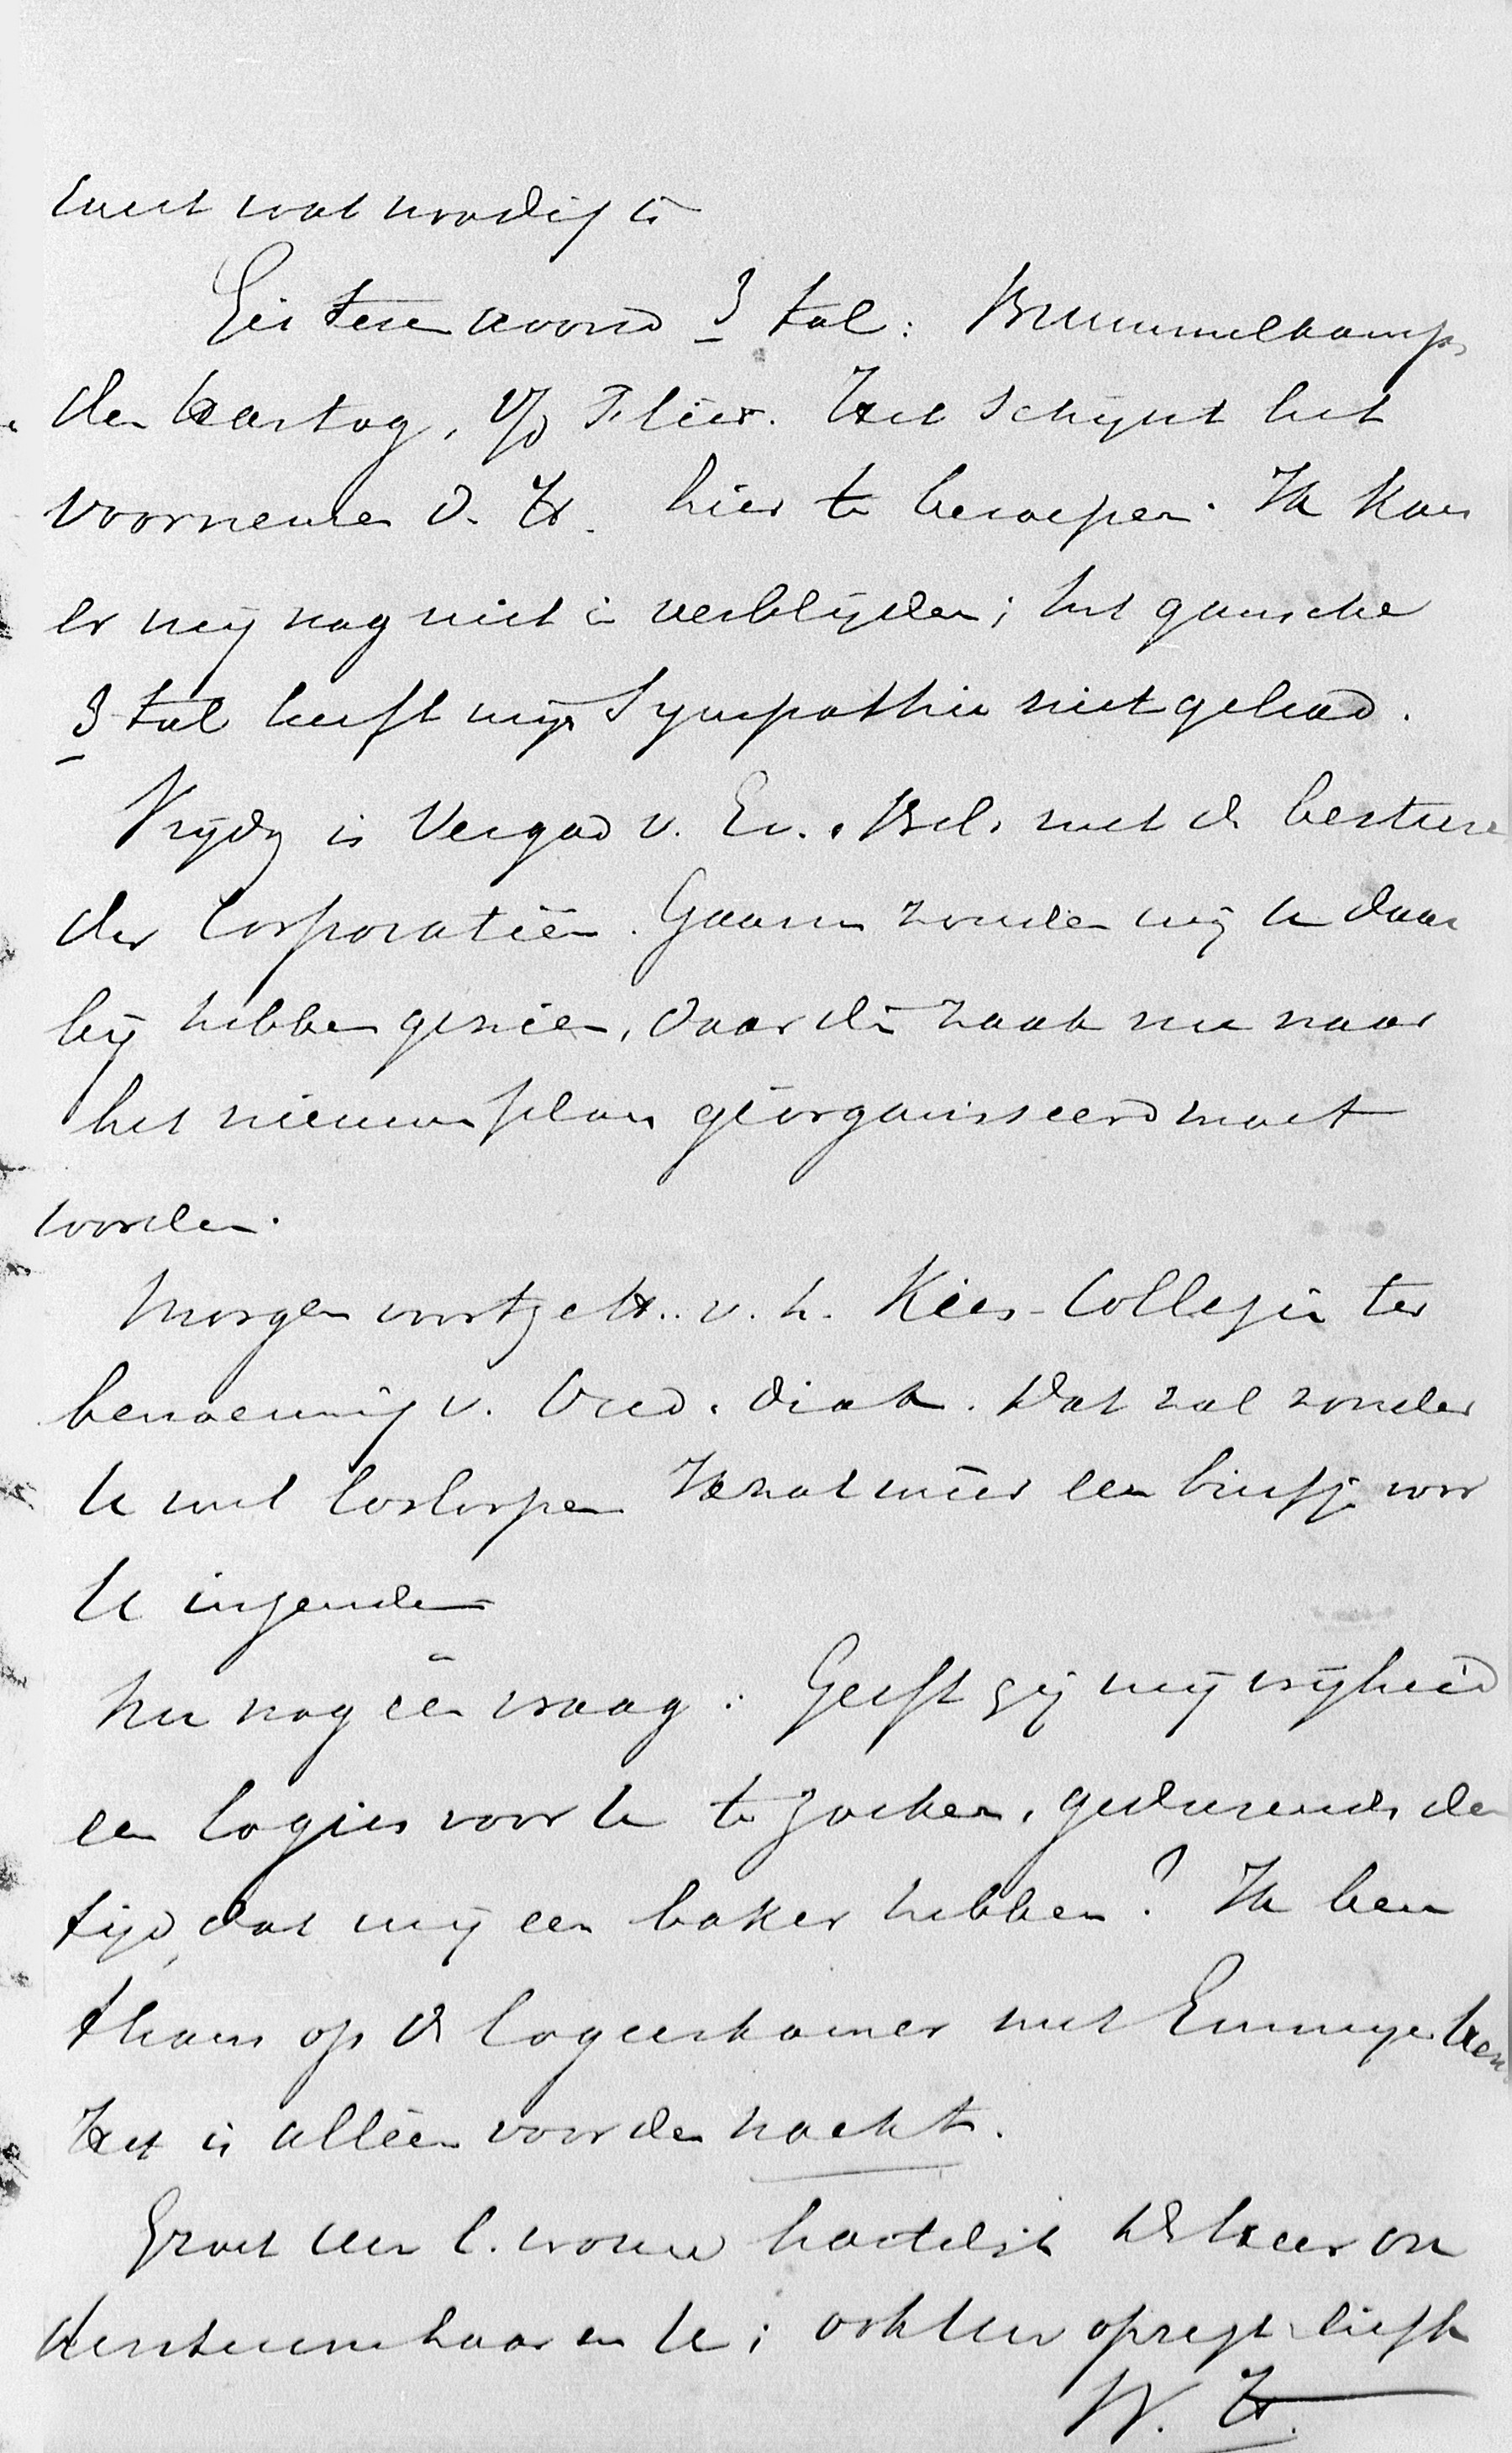 weet wat noodig is
Gisteren avond 3 tal: Brummelkamp
den Hartog, v/d Flier. Het schijnt het
voornemen d. H. hier te beroepen. Ik kan
er mij nog niet in verblijden; het gansche
3 tal heeft mijn sympathie niet gehad.
Vrijdg is Vergad v. Ev. Bel. met de besturen
der Corporatiën. Gaarne zouden wij U daar
bij hebben gezien, daar die zaak nu naar
het nieuwe plan georganisseerd moet
worden.
Morgen voortzett. v. h. Kies-Collegie ter
benoeming v. Oud. Diak. Dat zal zonder
U wel losloopen een briefje voor
U inzenden
Nu nog één vraag: Geeft gij mij vrijheid
een logies voor U te zoeken, gedurende den
tijd dat wij een baker hebben? Ik ben
thans op de logeerkamer met Emmye
Het is alléén voor den nacht.
Groet Uw l. vrouw hartelijk De Heer on
dersteune haar en U; ook Uw opregt liefh
W. H.